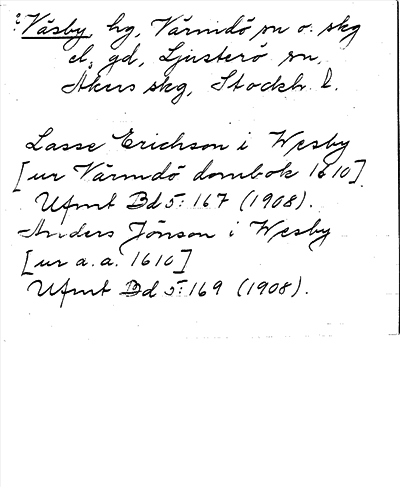 ? Väsby, hg, Värmdö sn o. skg
el. gd, Ljusterö sn,
Åkers skg, Stockh. l.
Lasse Erichson i Wesby
[ur Värmdö dombok 1610].
Ufmt Bd 5:167 (1908).
Anders Jönson i Wesby
[ur a.a. 1610]
Ufmt Bd 5:169 (1908).